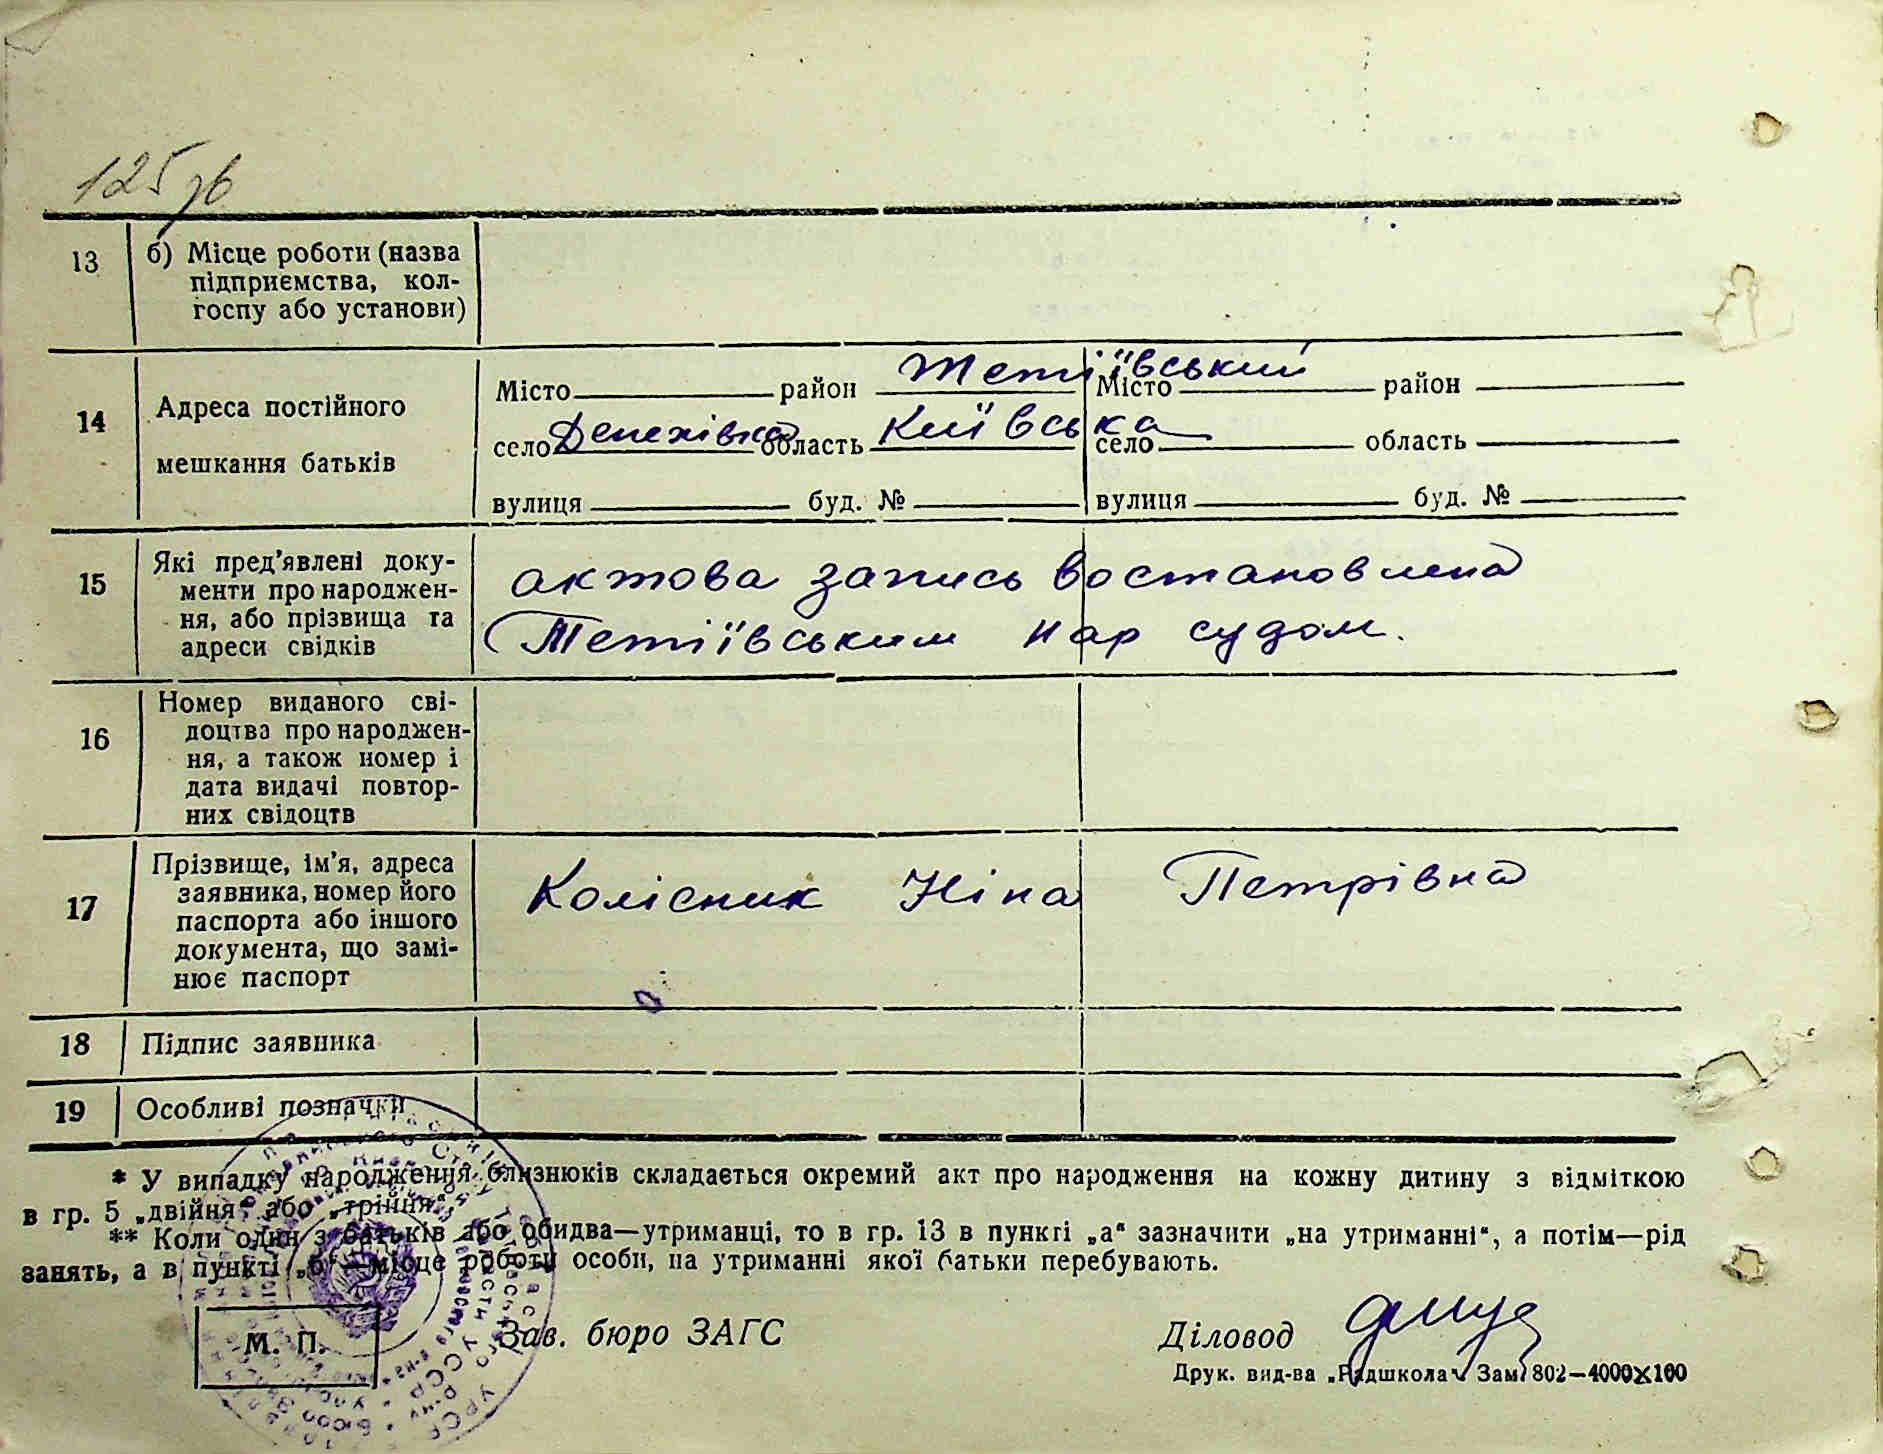 125 зв
13 б) Місце роботи (назва
підприємства, кол-
госпу або установи)
14 Адреса постійного
мешкання батьків
Місто район Тетіївський Місто район
село Денехівка область Київська село область
вулиця буд. № вулиця буд. №
15 Які пред'явлені доку-
менти про народжен-
ня, або прізвища та
адреси свідків
актова запись востановлена
Тетіївським нар судом.
16 Номер виданого сві-
доцтва про народжен-
ня, а також номер і
дата видачі повтор-
них свідоцтв
17 Прізвище, ім'я, адреса
заявника, номер його
паспорта або іншого
документа, що замі-
нює паспорт
Колісник Ніна Петрівна
18 Підпис заявника
19 Особливі позначки
* У випадку народження близнюків складається окремий акт про народження на кожну дитину з відміткою
в гр. 5 „двійня" або „трійня".
** Коли один з батьків або обидва—утриманці, то в гр. 13 в пункті „а" зазначити „на утриманні", а потім—рід
занять, а в пункті „б"—місце роботи особи, на утриманні якої батьки перебувають.
М. П. Зав. бюро ЗАГС Діловод
Друк. вид-ва „Радшкола" Зам. 802—4000×100